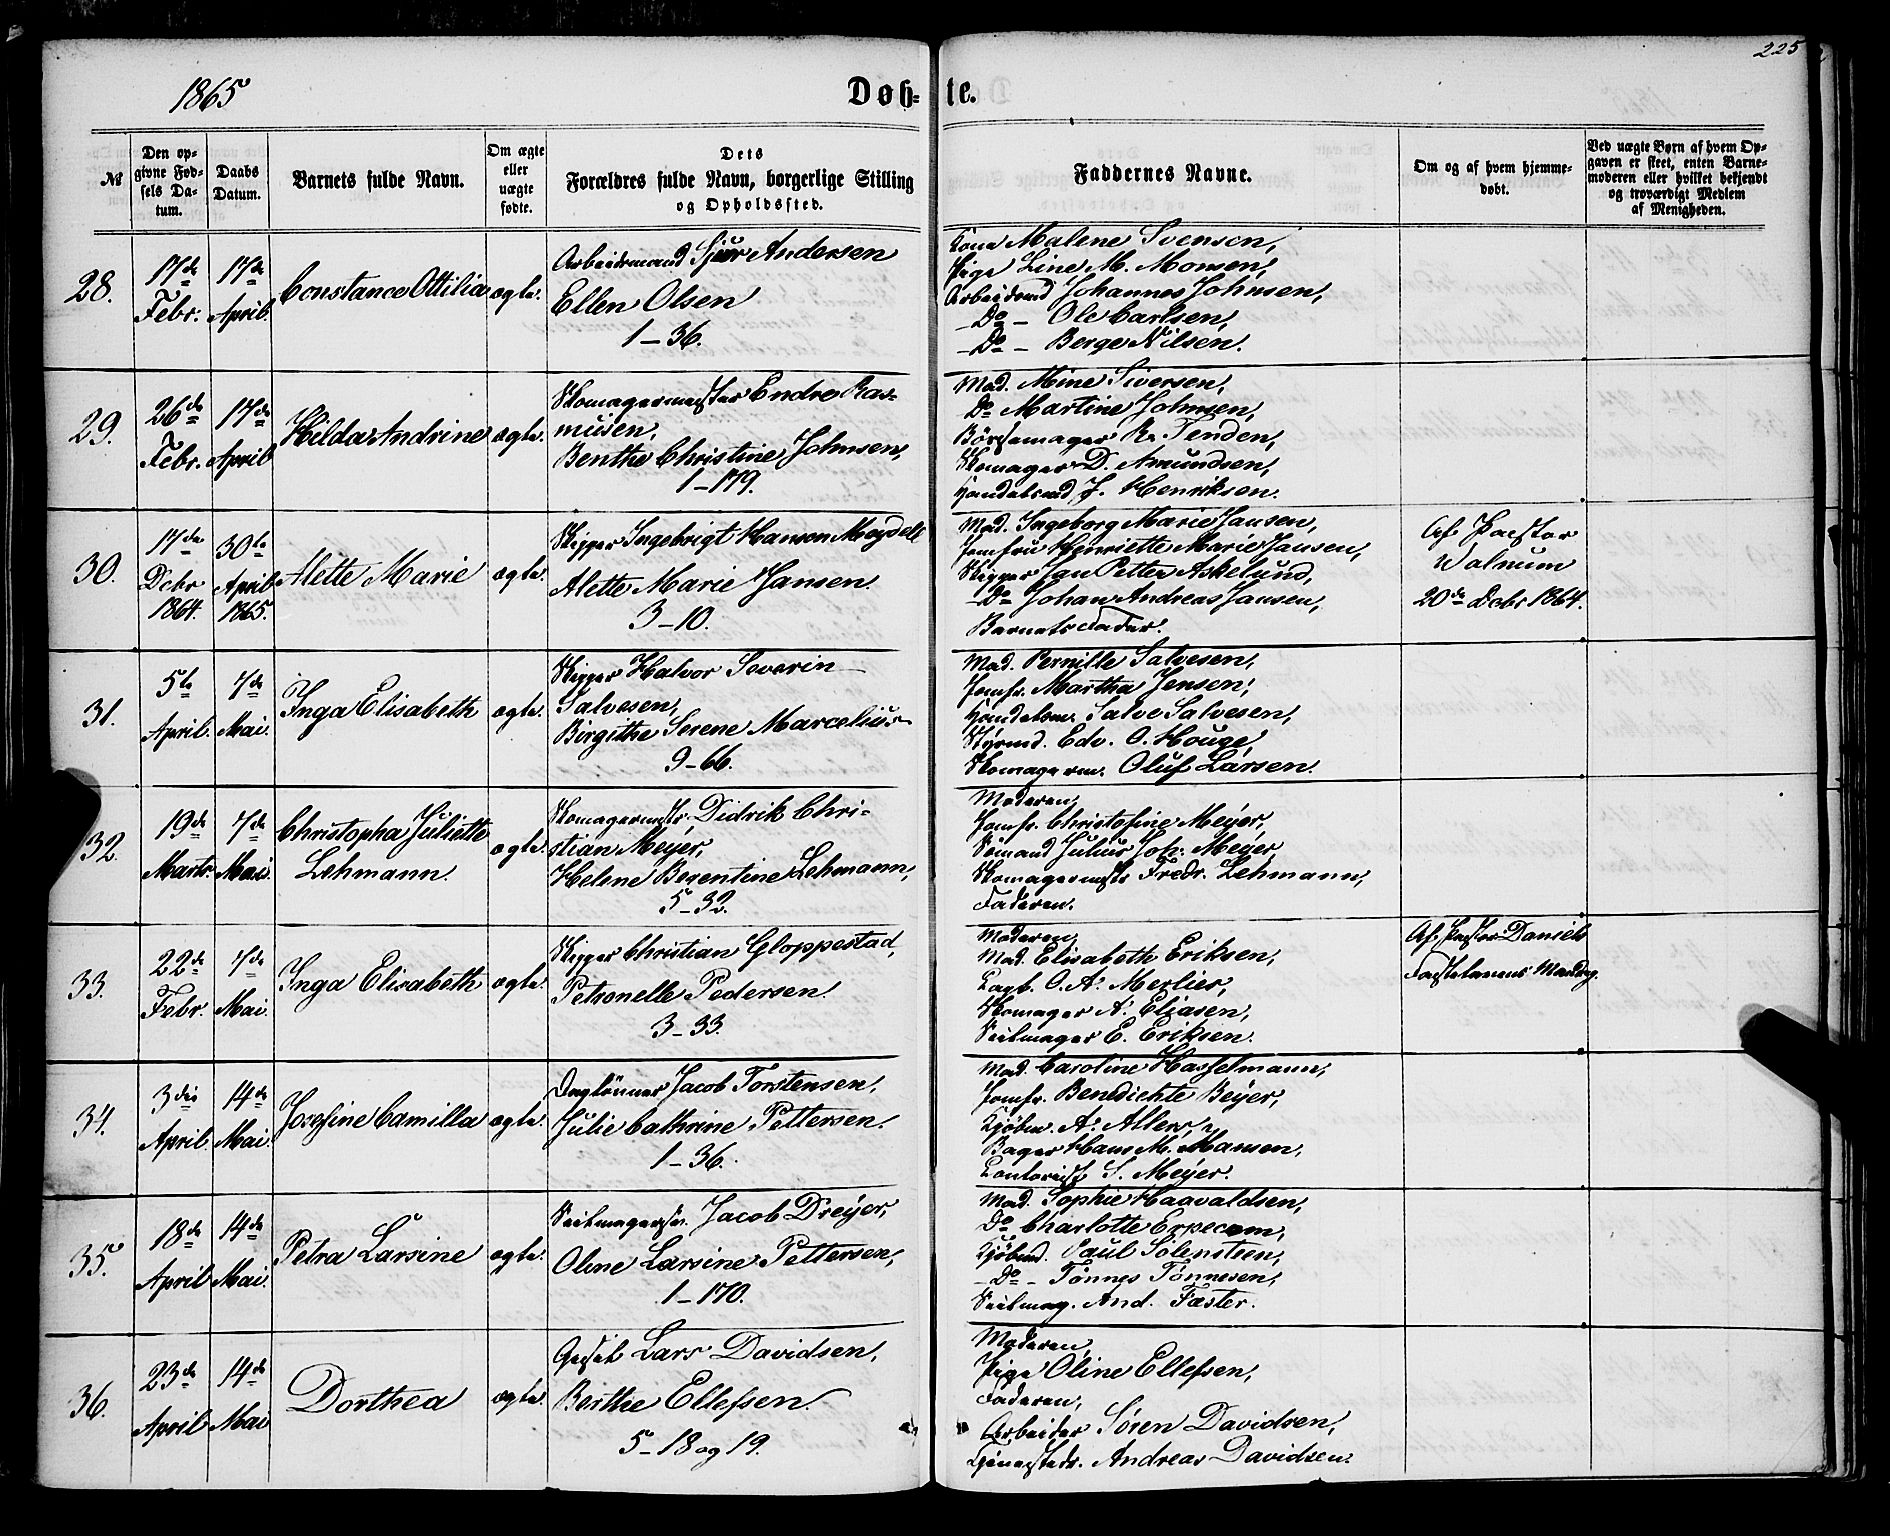 225
1865
Døb-
te.
№
Den op-
givne Fød-
sels Da-
tum.
Daabs
Datum.
Barnets fulde Navn.
Om ægte
eller
uægte
fødte.
Dets
Forældres fulde Navn, borgerlige Stilling
og Opholdssted.
Faddernes Navne.
Om og af hvem hjemme-
døbt.
Ved uægte Børn af hvem Op-
gaven er skeet, enten Barne-
moderen eller hvilket bekjendt
og troværdigt Medlem
af Menigheden.
28.
17de
Febr.
17de
April.
Constance Ottilia
ægte.
Arbeidsmand Sjur Andersen
Ellen Olsen
1-36.
Kone Malene Svensen,
Pige Line M. Monsen,
Arbeidsmd Johannes Johnsen,
-Do- Ole Carlsen,
-Do- Berge Nilsen.
29.
26de
Febr.
17de
April
Hilda Andrine
ægte.
Skomagermester Endre Ras-
musen,
Benthe Christine Johnsen,
1-179.
Mad. Mine Siversen,
Do Martine Johnsen,
Børsemager Rr. Tenden,
Skomager D. Amundsen,
Handelsmd J. Henriksen.
30.
17de
Dcbr
1864.
30te
April
1865.
Alette Marie
ægte.
Skipper Ingebrigt Hansen Meydell
Alette Marie Jansen.
3-10.
Mad. Ingeborg Marie Jansen,
Jomfru Henriette Marie Jansen,
Skipper Jan Petter Askelund,
-Do Johan Andreas Jansen,
Barnets Fader.
Af Pastor
Walnum
20de Dcbr 1864.
31.
5te
April.
7de
Mai.
Inga Elisabeth
ægte.
Skipper Halvor Severin
Salvesen,
Birgithe Serene Marcelius-
9-66.
Mad. Pernille Salvesen,
Jomfr. Martha Jensen,
Handelsm. Salve Salvesen,
Styrmd. Edv. O. Houge,
Skomagerm. Oluf Larsen.
32.
19de
Marts.
7de
Mai.
Christopha Juliette
Lehmann.
ægte.
Skomagermstr. Didrik Chri-
stian Meyer,
Helene Berentine Lehmann,
5-32.
Moderen,
Jomfr. Christofine Meyer,
Sømand Julius Joh. Meyer
Skomagermstr Fredr. Lehmann,
Faderen.
33.
22de
Febr.
7de
Mai.
Inga Elisabeth
ægte.
Skipper Christian Gloppestad,
Petronelle Pedersen.
3-33.
Moderen,
Mad. Elisabeth Eriksen,
O. A. Merlier,
Skomager A. Eliasen,
Seilmager E. Eriksen.
Af Pastor Daniels
Fastelavens Mandag.
34.
3die
April.
14de
Mai.
Josefine Camilla
ægte.
Daglønner Jacob Torstensen,
Julie Cathrine Pettersen.
1-36.
Mad. Caroline Hasselmann,
Jomfr. Bendichte Beyer,
Kjøbm. A. Allers,
Bager Hans M. Mansen,
Contorist S. Meyer.
35.
18de
April
14de
Mai.
Petra Larsine
ægte.
Seilmagersv. Jacob Dreyer,
Oline Larsine Pettersen,
1-170.
Mad. Sophie Haavaldsen,
Do Charlotte Erpecom,
Kjøbmd. Paul Solensteen,
-Do- Tønnes Tønnesen,
Seilmag. And. Fæster.
36.
23de
April
14de
Mai
Dorthea
ægte.
Lars Davidsen,
Berthe Ellefsen.
5-18 og 19.
Moderen,
Pige Oline Ellefsen,
Faderen,
Arbeider Søren Davidsen,
Andreas Davidsen.